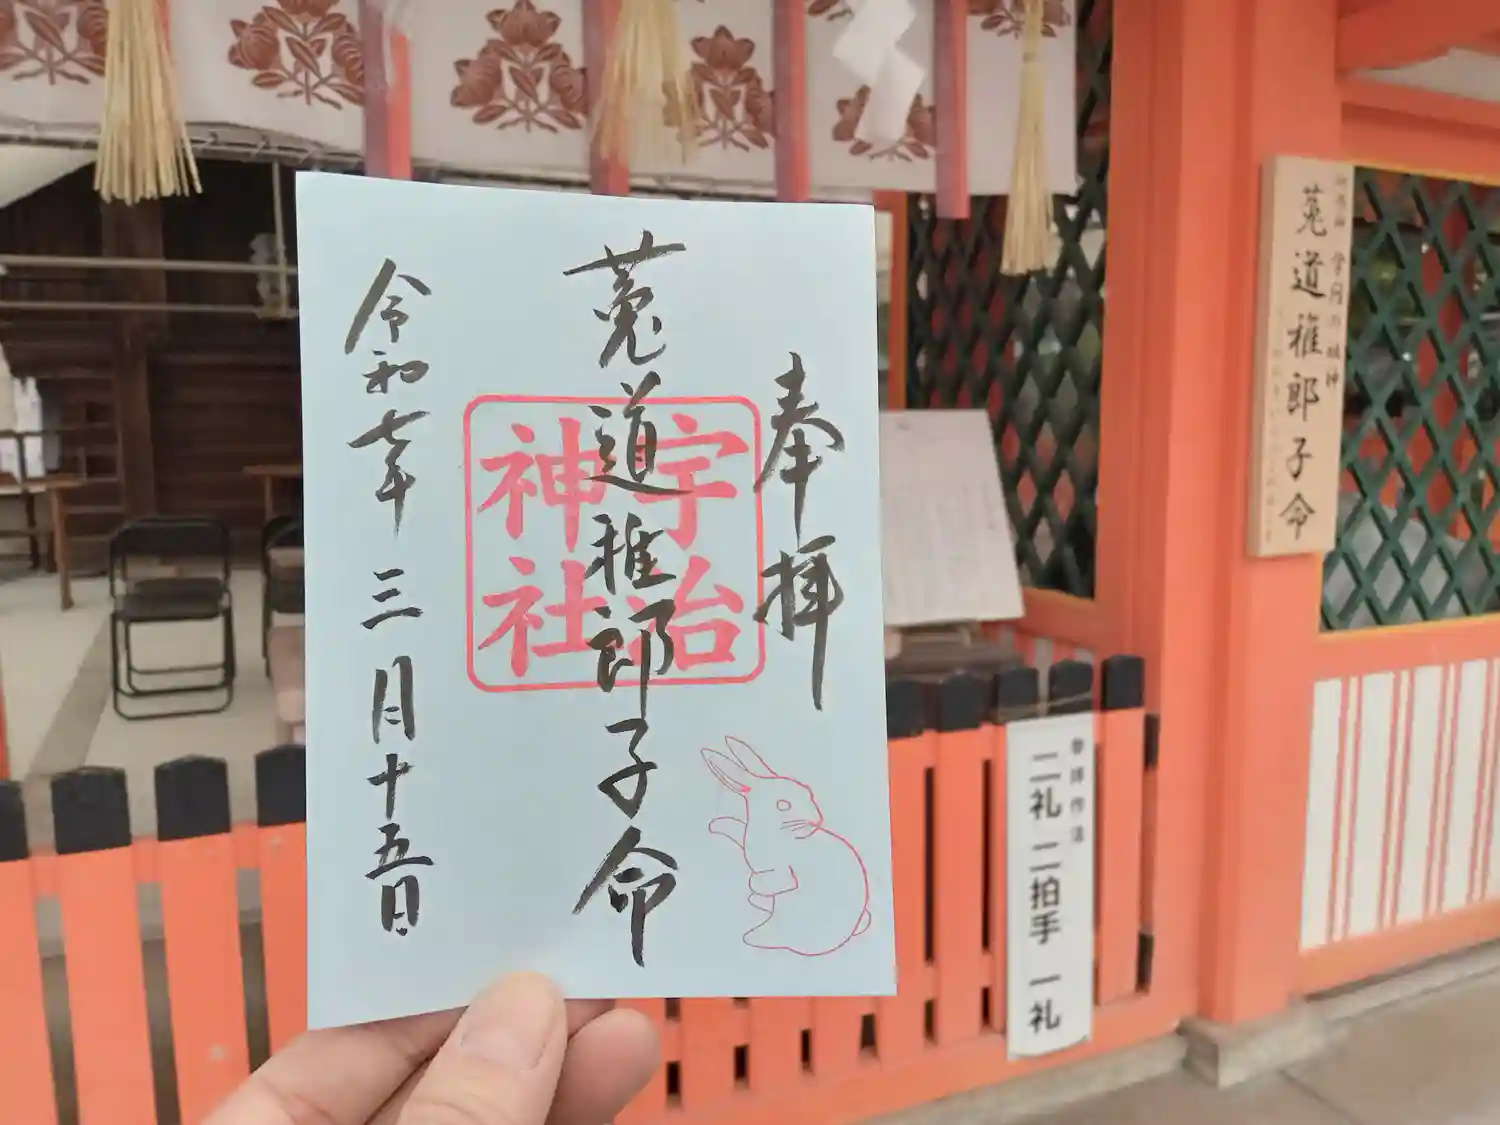 奉拝
菟道稚郎子命
宇治
神社
令和七年三月十五日
菟道稚郎子命
参拝作法
二礼 二拍手 一礼